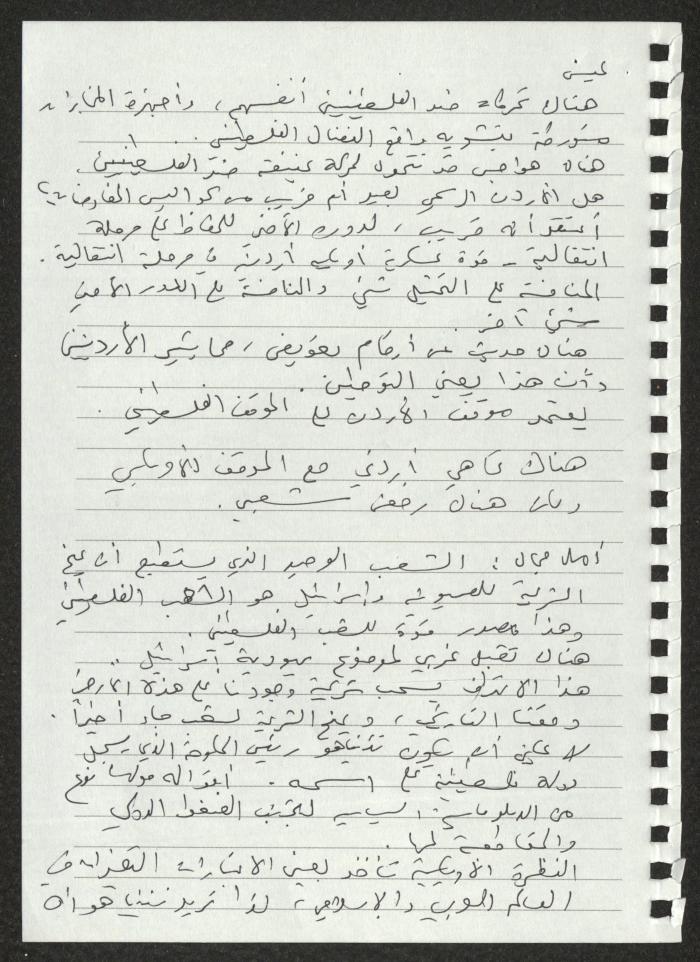 هناك تحركات ضد الفلسطينيين أنفسهم، وأجهزة المخابرات
متورطة بتشويه واقع النضال الفلسطيني.
هناك هواجس قد تتحول لحركة عنيفة ضد الفلسطينيين.
هل الأردن الرسمي بعيد أم قريب من كواليس المفاوضات؟
أعتقد أنه قريب، لدوره الأمني للحفاظ على مرحلة
انتقالية - قوة عسكرية أردنية في مرحلة انتقالية.
المنافسة على التمثيل شيء والمنافسة على الدور الأمني
شيء آخر.
هناك حديث عن أرقام تعويض، الأردنيين
وأن هذا يعني التوطين.
يعتمد موقف الأردن على الموقف الفلسطيني.
هناك تماهي أردني مع الموقف الأمريكي
هناك رفض شعبي.
الشعب الوحيد الذي يستطيع أن يمنح
الشرعية للصهيونية وإسرائيل هو الشعب الفلسطيني
وهذا مصدر قوة للشعب الفلسطيني.
هناك تقبل غربي لموضوع يهودية إسرائيل..
هذا الاعتراف يسحب شرعية وجودنا على هذه الأرض
وحقنا التاريخي، ويمنح الشرعية لشعب جاء أخيراً.
لا يمكن أن يكون نتنياهو رئيس الحكومة الذي يسجل
دولة فلسطينية على اسمه. نوع
من الدبلوماسية السياسية لتجنب الضغط الدولي
والمقاطعة لها.
النظرة الأمريكية تأخذ بعين الاعتبار التغيرات في
العالم العربي والإسلامي، لذا تريد نتنياهو أن